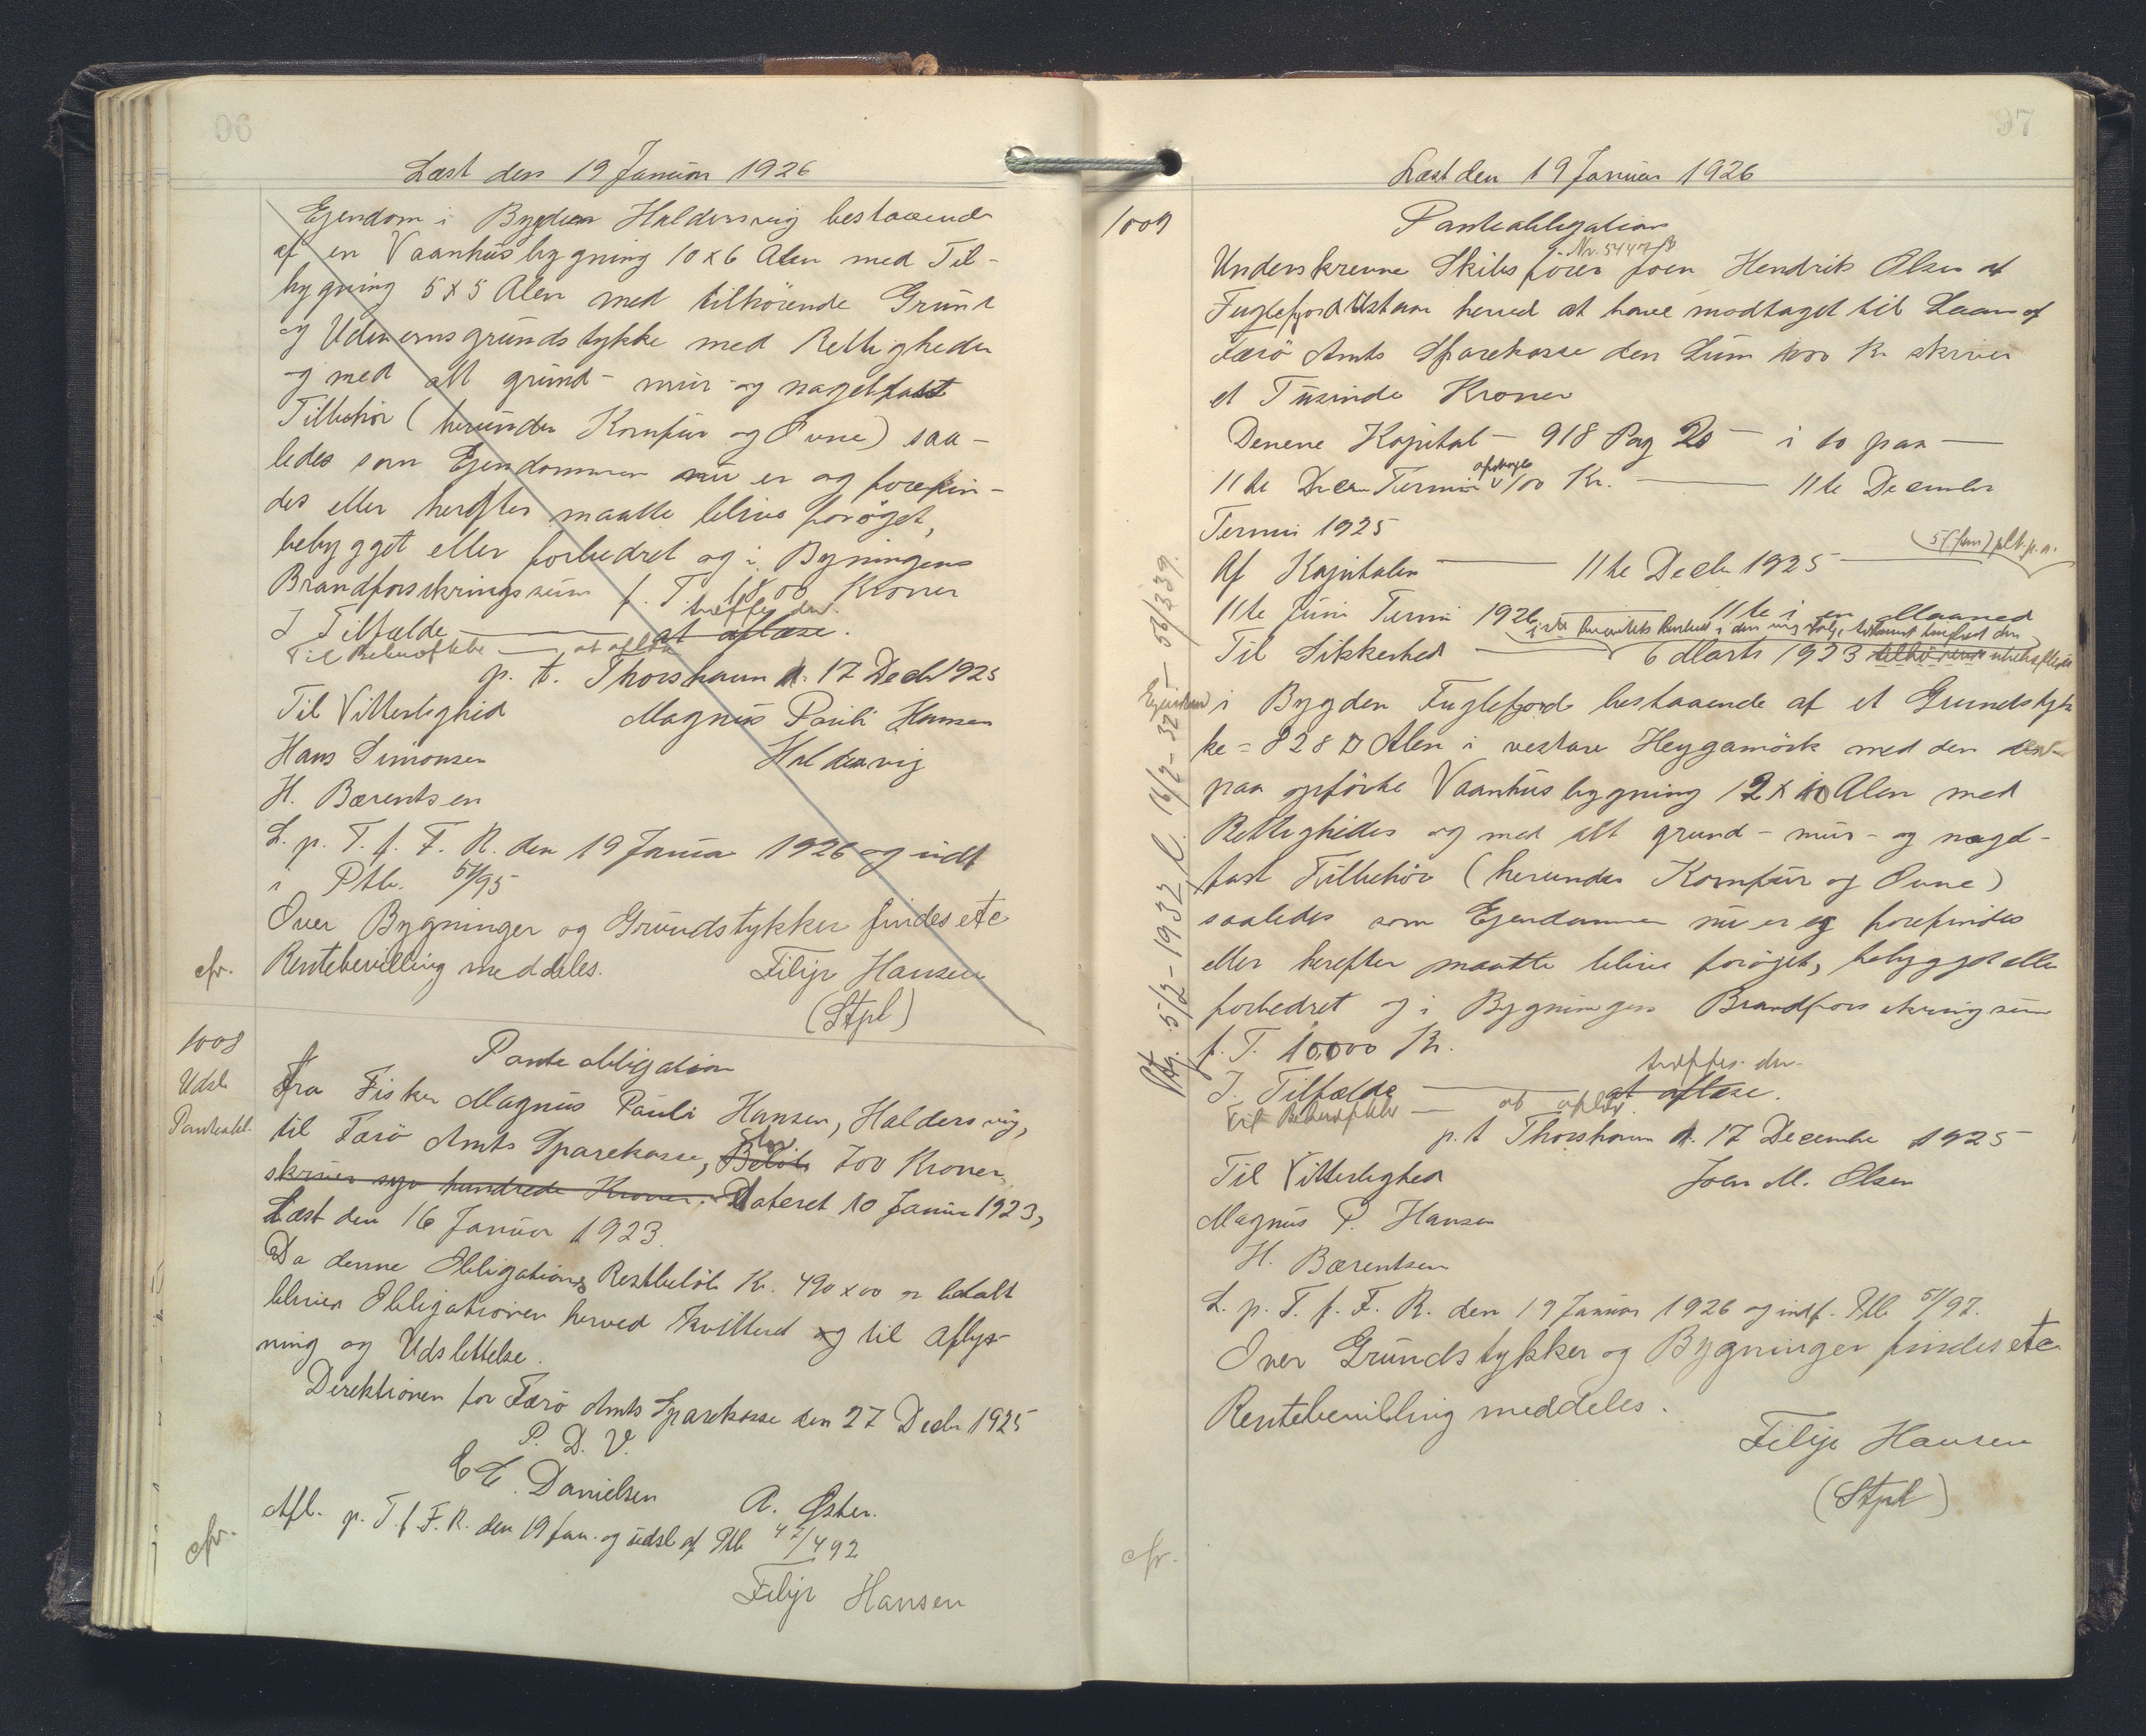 96
Læst den 19 Januar 1926
Ejendom i Bygden Haldersvig bestaaende
af en Vaanhusbygning 10 x 6 Alen med Til-
bygning 5 x 5 Alen med tilhörende Grund
og Udenomsgrundstykke med Rettigheder
og med alt grund- mur- og nagelfast
Tilbehör (herunder Komfur og Ovne) saa-
ledes som Ejendommen nu er og forefin-
des eller herefter maatte blive foröget,
bebygget eller forbedret og i Bygningens
Brandforsikringssum f. T. 1800 Kroner
træffes der.
I Tilfælde — at aflæse.
Til Bekræftelse — at aflæse
p. t. Thorshavn d. 17 Decbr 1925
Til Vitterlighed Magnus Pauli Hansen
Hans Simonsen Haldersvig
H. Bærentsen
L. p. T. f. F. R. den 19 Januar 1926 og indf
i Ptb. 51/95
Over Bygninger og Grundstykker findes etc
cfr. Rentebevilling meddeles. Filip Hansen
(Stpl)
1008
Udsl
Panteobl.
Pante obligation
fra Fisker Magnus Pauli Hansen, Haldersvig,
til Færö Amts Sparekasse, Beløb stor 700 Kroner
skriver syv hundrede Kroner. Dateret 10 Januar 1923,
Læst den 16 Januar 1923.
Da denne Obligations Restbelöb Kr. 490 x 00 er betalt
bliver Obligationen herved kvitteret og til Aflys-
ning og Udslettelse.
Direktionen for Færö Amts Sparekasse den 27 Decbr 1925
P. D. V.
E. E. Danielsen A. Øster.
Afl. p. T. f. F. R. den 19 Jan. og udsl af Ptb 47/492
cfr.
Filip Hansen
97
Læst den 19 Januar 1926
1009
Panteobligation
Nr. 5447 B
Underskrevne Skibsförer Joen Hendrik Olsen af
Fuglefjord tilstaar herved at have modtaget til Laans af
Færö Amts Sparekasse den Sum 1000 Kr skriver
et Tusinde Kroner
Denne Kapital — 918 Pag 20 — i to paa —
11te Decbr Termin afdrages 100 Kr. — 11te December
Termin 1925
5 (fem) pCt. p. a.
Af Kapitalen — 11te Decbr 1925 —
11te Juni Termin 1926, 11te i en Maaned
Til Sikkerhed — 6 Marts 1923 tilhörende
Ejendom i Bygden Fuglefjord bestaaende af et Grundstyk-
ke = 828 □ Alen i vestare Heygamörk med den der-
paa opförte Vaanhusbygning 12 x 10 Alen med
Rettigheder og med alt grund- mur- og nagel-
fast Tilbehör (herunder Komfur og Ovne)
saaledes som Ejendommen nu er og forefindes
eller herefter maatte blive foröget, bebygget eller
forbedret og i Bygningens Brandforsikringssum
f. T. 10,000 Kr.
træffes der
I Tilfælde — at aflæse.
Til Bekræftelse — at aflæse
p. t Thorshavn d. 17 December 1925
Til Vitterlighed Joen H. Olsen
Magnus P. Hansen
H. Bærentsen
L. p. T. f. F. R. den 19 Januar 1926 og indf. Ptb 51/97.
Over Grundstykker og Bygninger findes etc
Rentebevilling meddeles.
Filip Hansen
(Stpl)
cfr.